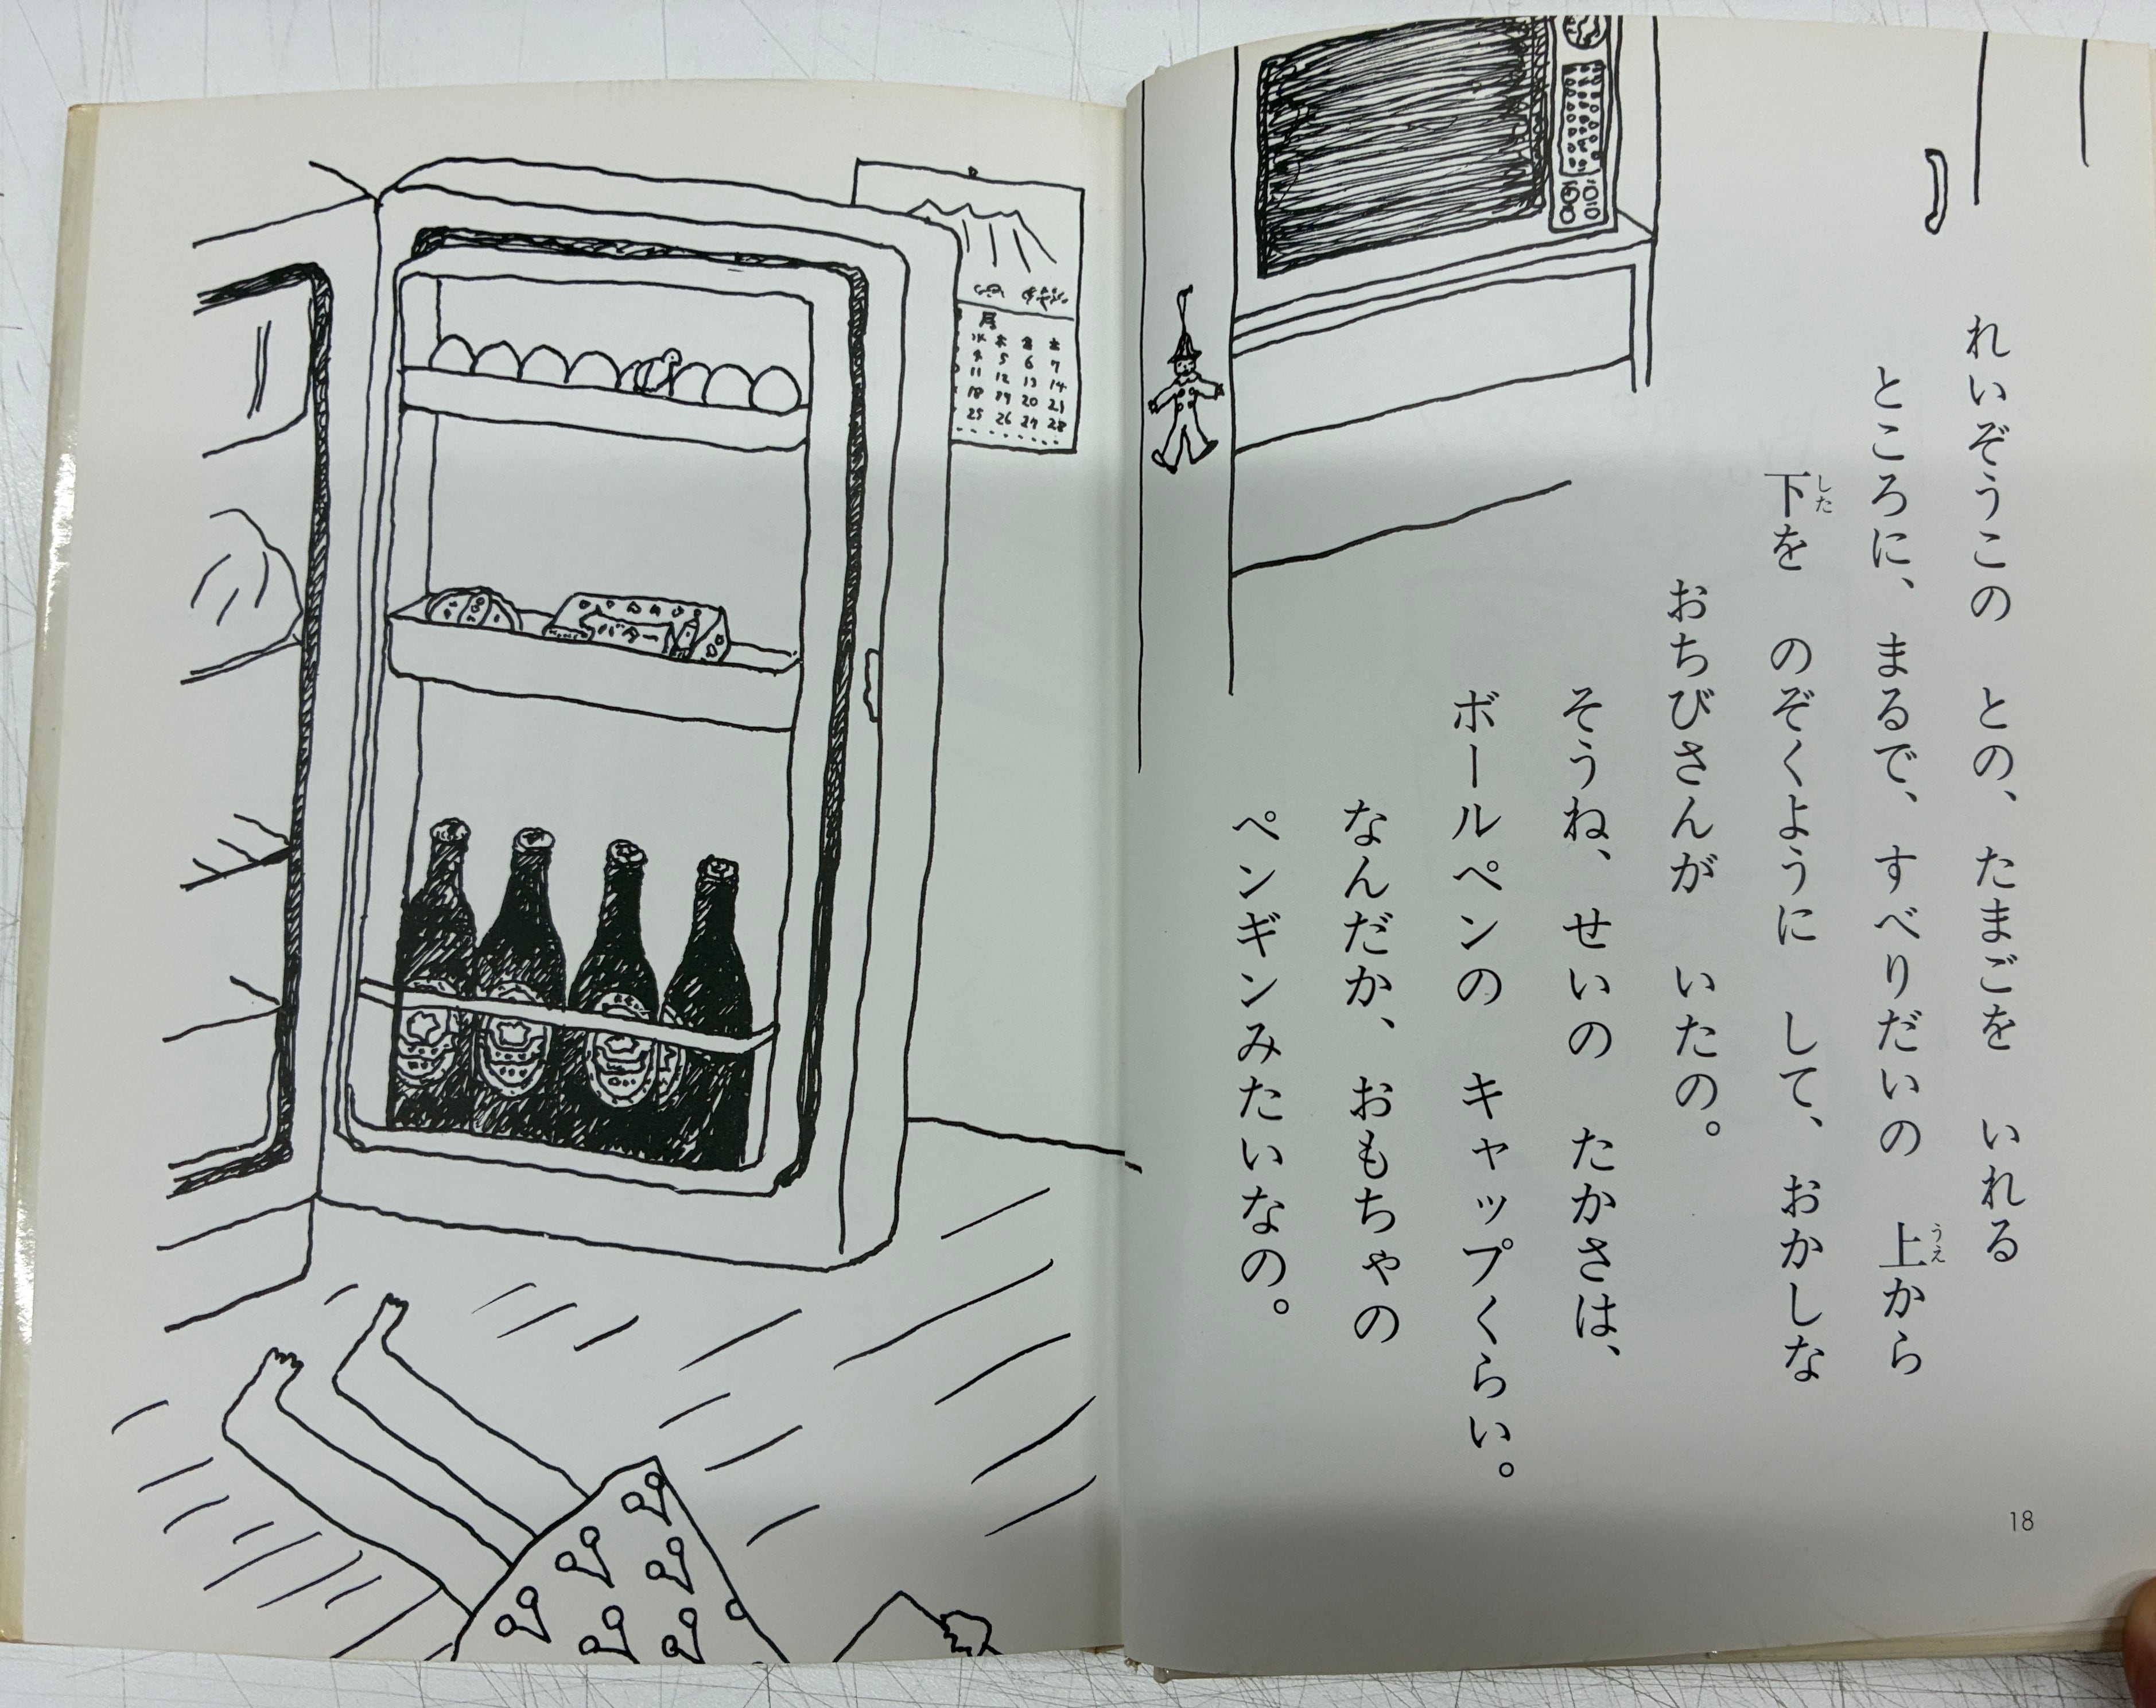 れいぞうこの　との、　たまごを　いれる
ところに、　まるで、　すべりだいの　上から
うえ
下を　のぞくように　して、　おかしな
した
おちびさんが　いたの。
そうね、　せいの　たかさは、
ボールペンの　キャップくらい。
なんだか、　おもちゃの
ペンギンみたいなの。
18
バター
月
水 木 金 土
4 5 6 7
11 12 13 14
18 19 20 21
25 26 27 28